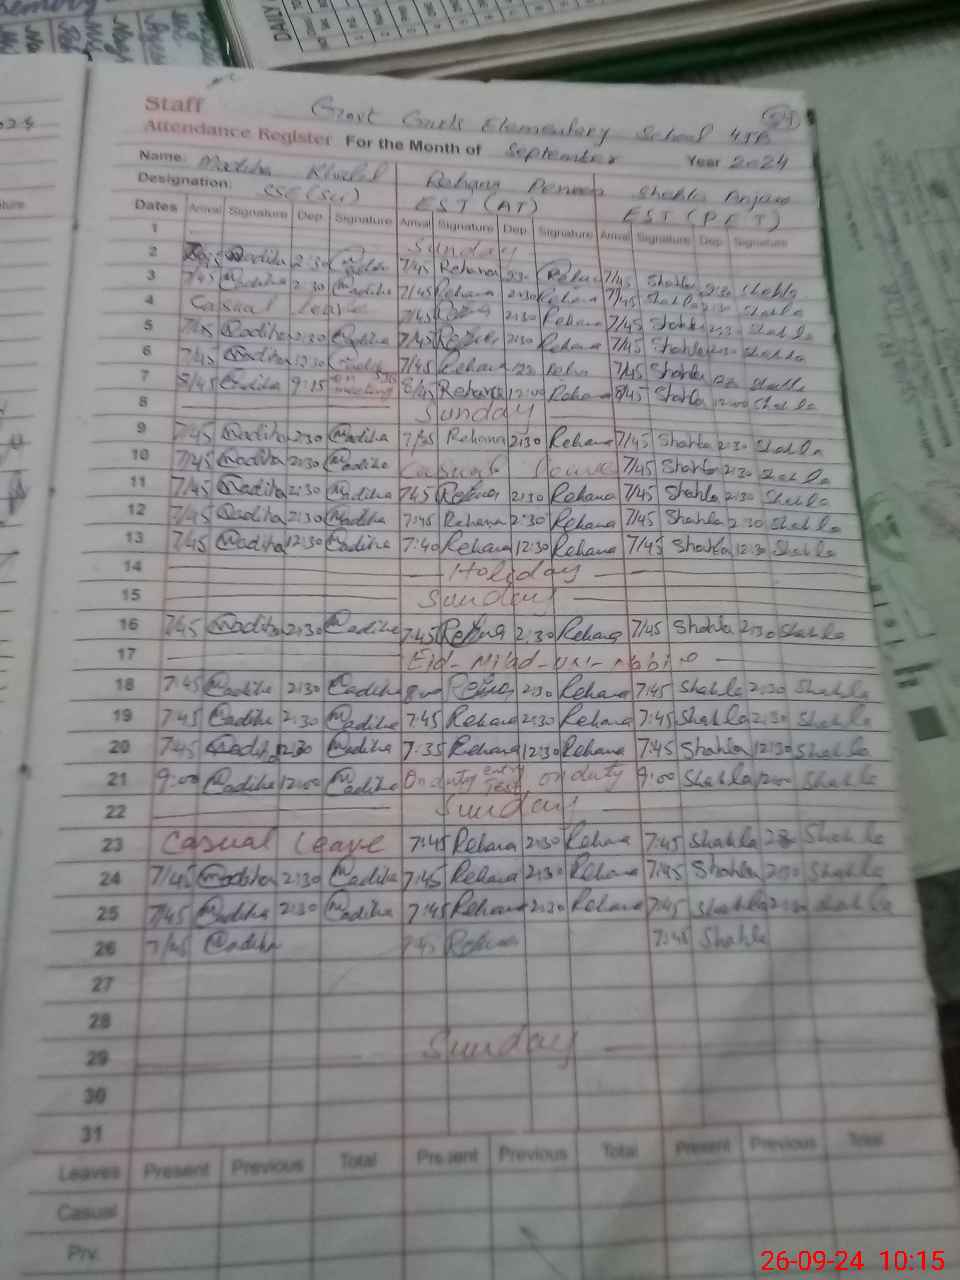 DAILY
Staff Govt Girls Elementary School 45B
Attendance Register For the Month of September Year 2024
Name: Madiha Khalid Rehana Perveen Shahla Anjam
Designation: SSE(Sci) EST (AT) EST (PET)
Dates Arrival Signature Dep. Signature Arrival Signature Dep. Signature Arrival Signature Dep. Signature
1 Sunday
2 Madiha 2:30 Madiha 7/45 Rehana 2:30 Rehana 7/45 Shahla 2:30 Shahla
3 7/45 Madiha 2:30 Madiha 7/45 Rehana 2:30 Rehana 7/45 Shahla 2:30 Shahla
4 Casual leave 7/45 2:30 Rehana 7/45 Shahla 2:30 Shahla
5 7/45 Madiha 2:30 Madiha 7/45 Rehana 2:30 Rehana 7/45 Shahla 2:30 Shahla
6 7/45 Madiha 12:30 Madiha 7/45 Rehana Rehana 7/45 Shahla Shahla
7 8/45 Madiha 9:15 meeting 8/45 Rehana 12:00 Rehana 8/45 Shahla 12:00 Shahla
8 Sunday
9 7/45 Madiha 2:30 Madiha Rehana 2:30 Rehana 7/45 Shahla 2:30 Shahla
10 7/45 Madiha 2:30 Madiha Casual leave 7/45 Shahla 2:30 Shahla
11 7/45 Madiha 2:30 Madiha 7:45 Rehana 2:30 Rehana 7/45 Shahla 2:30 Shahla
12 7/45 Madiha 2:30 Madiha 7:45 Rehana 2:30 Rehana 7/45 Shahla 2:30 Shahla
13 7/45 Madiha 12:30 Madiha 7:40 Rehana 12:30 Rehana 7/45 Shahla 12:30 Shahla
14 Holiday
15 Sunday
16 7:45 Madiha 2:30 Madiha 7:45 Rehana 2:30 Rehana 7/45 Shahla 2:30 Shahla
17 Eid-Milad-un-nabi
18 7:45 Madiha 2:30 Madiha Rehana 2:30 Rehana 7:45 Shahla 2:30 Shahla
19 7:45 Madiha 2:30 Madiha 7:45 Rehana 2:30 Rehana 7:45 Shahla 2:30 Shahla
20 7:45 Madiha 12:30 Madiha 7:35 Rehana 12:30 Rehana 7:45 Shahla 12:30 Shahla
21 9:00 Madiha 12:00 Madiha On duty entry Test on duty 9:00 Shahla 12:00 Shahla
22 Sunday
23 Casual Leave 7:45 Rehana 2:30 Rehana 7:45 Shahla Shahla
24 7/45 Madiha 2:30 Madiha 7:45 Rehana 2:30 Rehana 7:45 Shahla 2:30 Shahla
25 7/45 Madiha 2:30 Madiha 7:45 Rehana 2:30 Rehana 7:45 Shahla 2:30 Shahla
26 7/45 Madiha 7:45 Rehana 7:45 Shahla
27
28
29 Sunday
30
31
Leaves Present Previous Total Present Previous Total Present Previous Total
Casual
Prv.
26-09-24 10:15